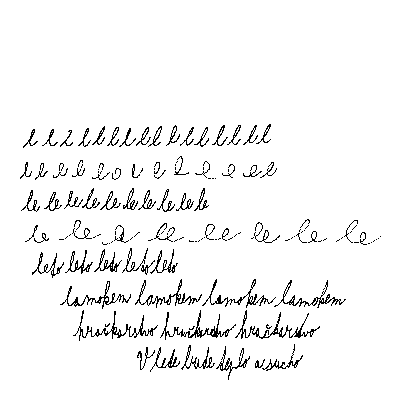 l l l l l l l l l l l l l l l l
l l l l e o l e l e e e el
le le le le le le le le le le
le le a le le le le le
leto leto leto leto leto
lamokem lamokem lamokem lamokem
hračkarstvo hračkarstvo hračkarstvo
V lete bude teplo a sucho